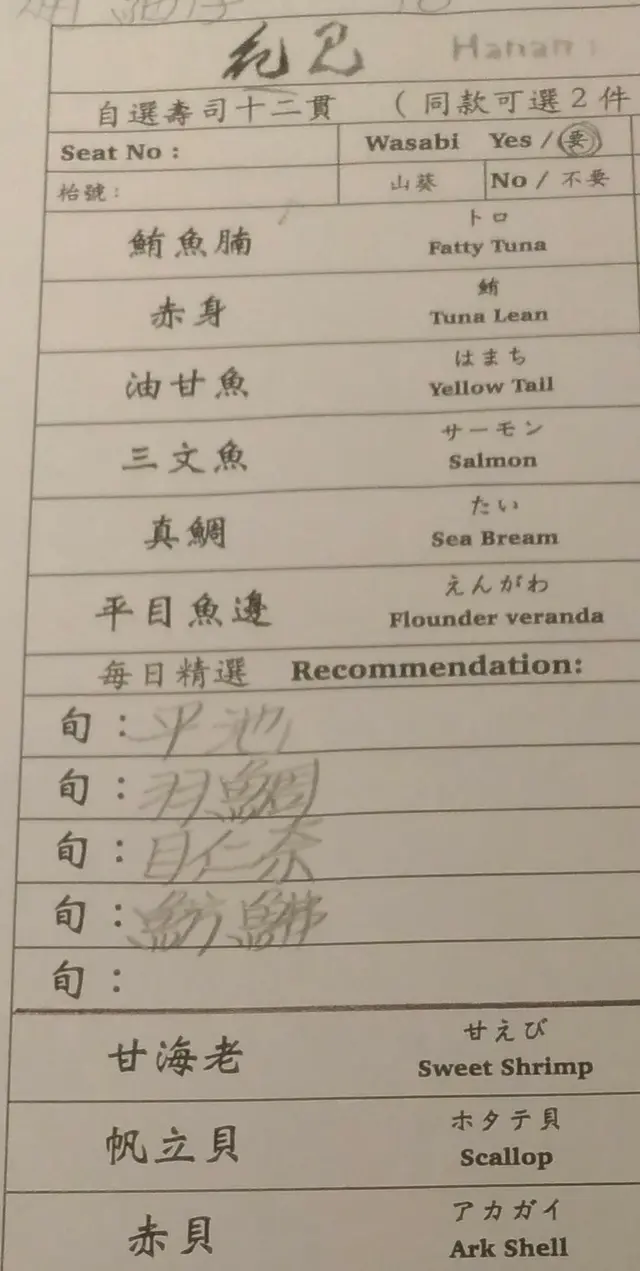 花見 Hanami
自選壽司十二貫 (同款可選2件
Seat No : Wasabi Yes / 要
枱號: 山葵 No / 不要
鮪魚腩 トロ
Fatty Tuna
赤身 鮪
Tuna Lean
油甘魚 はまち
Yellow Tail
三文魚 サーモン
Salmon
真鯛 たい
Sea Bream
平目魚邊 えんがわ
Flounder veranda
每日精選 Recommendation:
旬: 平池
旬: 鯛
旬: 目仁奈
旬: 魴鮄
旬:
甘海老 甘えび
Sweet Shrimp
帆立貝 ホタテ貝
Scallop
赤貝 アカガイ
Ark Shell